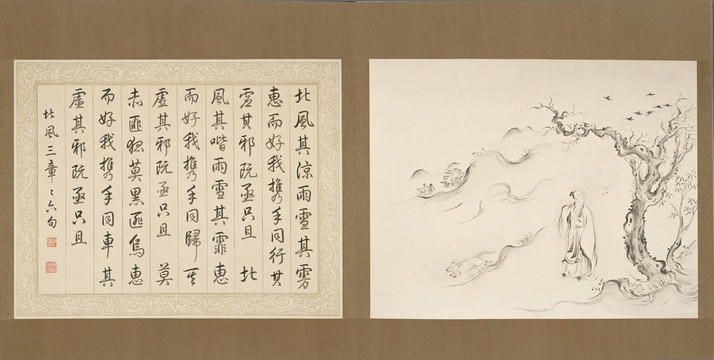 北風其涼雨雪其雱
惠而好我攜手同行其
虛其邪既亟只且 北
風其喈雨雪其霏惠
而好我攜手同歸 其
虛其邪既亟只且 莫
赤匪狐莫黑匪烏惠
而好我攜手同車其
虛其邪既亟只且
北風三章〻六句